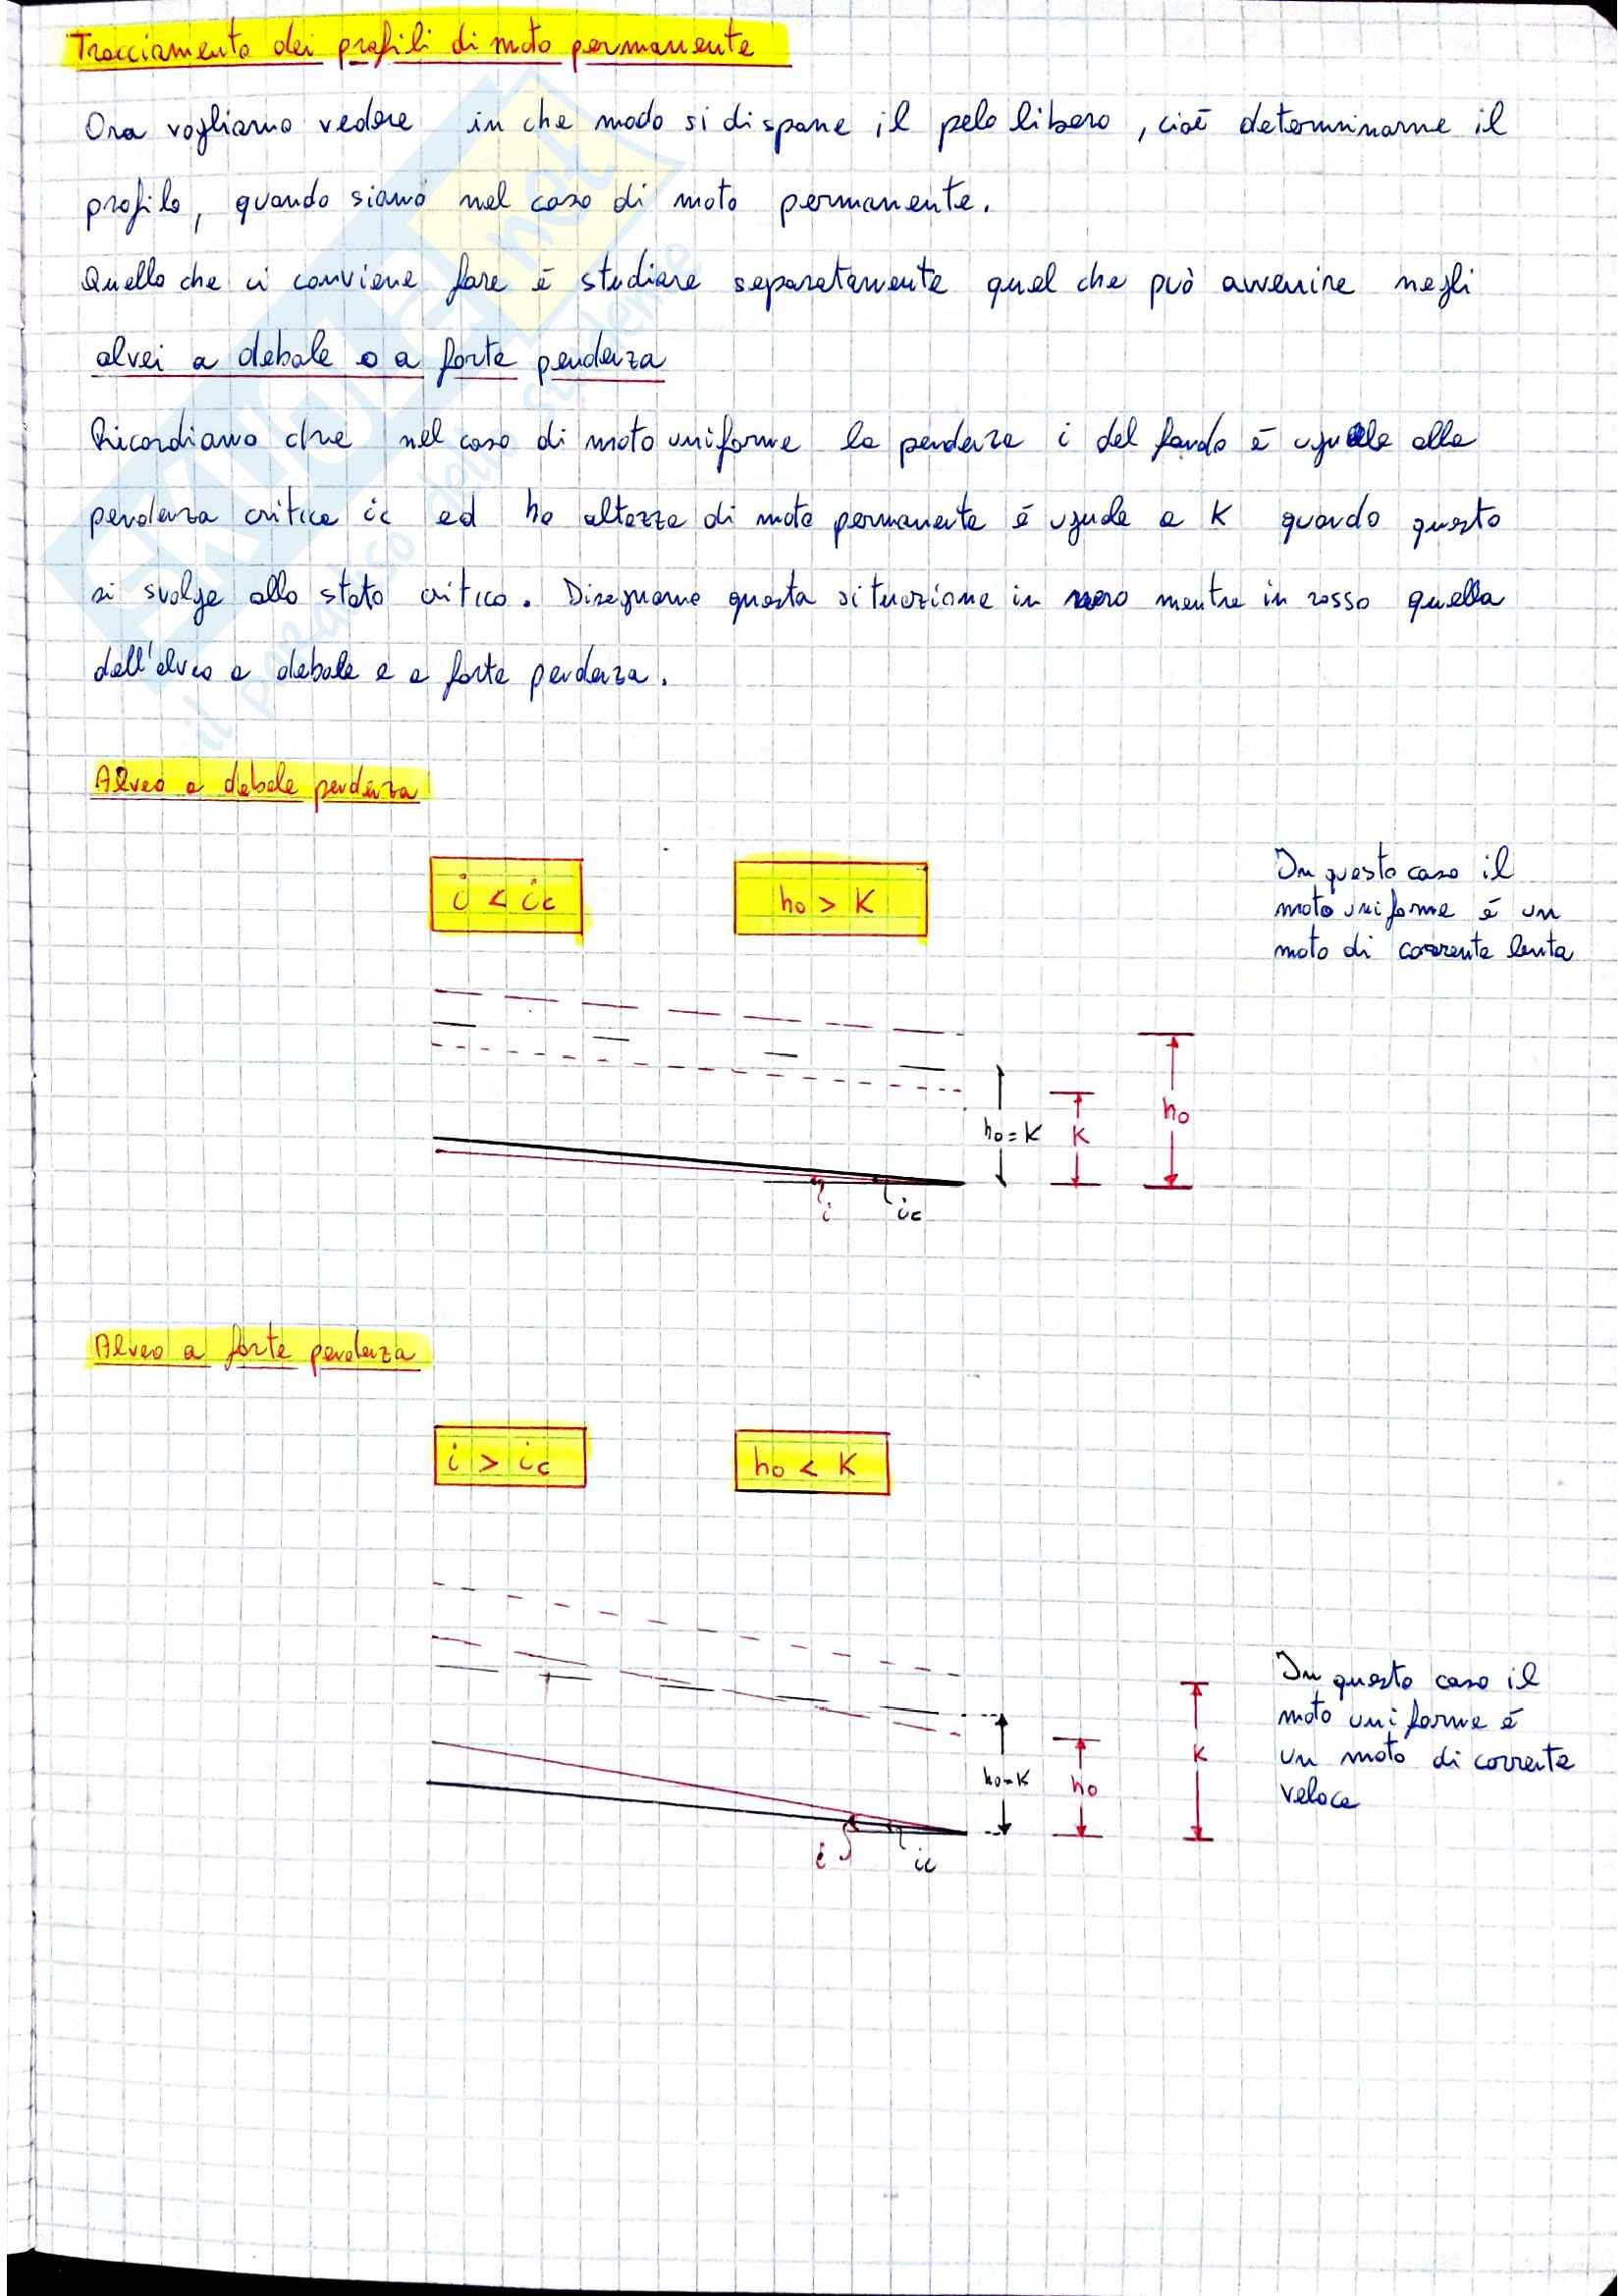 Tracciamento dei profili di moto permanente
Ora vogliamo vedere in che modo si dispone il pelo libero, cioè determinarne il
profilo, quando siamo nel caso di moto permanente.
Quello che ci conviene fare è studiare separatamente quel che può avvenire negli
alvei a debole o a forte pendenza
Ricordiamo che nel caso di moto uniforme la pendenza i del fondo è uguale alla
pendenza critica ic ed ho altezza di moto permanente è uguale a K quando questo
si svolge allo stato critico. Disegnamo questa situazione in nero mentre in rosso quella
dell'alveo a debole e a forte pendenza.
Alveo a debole pendenza
i < ic
ho > K
In questo caso il
moto uniforme è un
moto di corrente lenta
ho = K
K
ho
i
ic
Alveo a forte pendenza
i > ic
ho < K
In questo caso il
moto uniforme è
un moto di corrente
veloce
ho = K
ho
K
i
ic